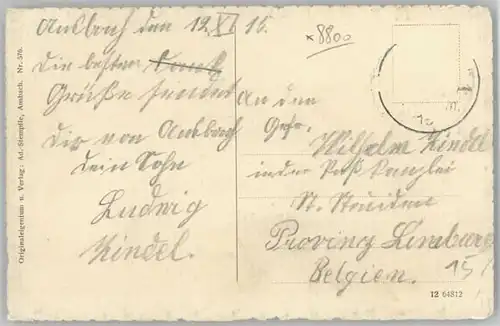 Ansbach den 12. XI 16.
Die besten Dank
Grüße sendet
Dir von Ansbach
dein Sohn
Ludwig
Kindel.
*8800
An den
Gefr.
Wilhelm Kindel
in der Paß Kanzlei
St. Truiden
Provinz Limburg
Belgien.
15
Originaleigentum u. Verlag: Ad. Stempfle, Ansbach. Nr. 570.
12 64812